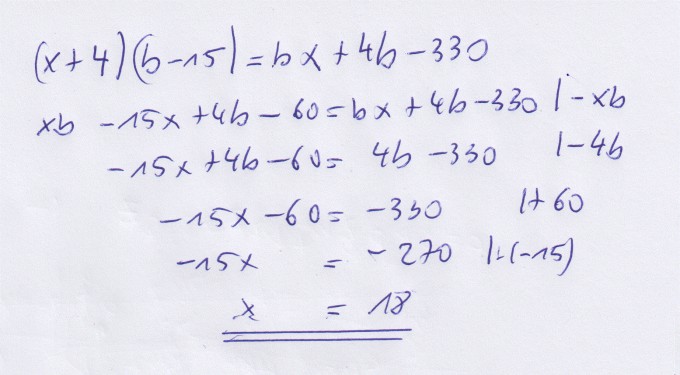 (x+4)(b-15)=bx+4b-330
xb -15x+4b-60=bx+4b-330 |-xb
-15x+4b-60= 4b-330 |-4b
-15x-60= -330 |+60
-15x = -270 |:(-15)
x = 18